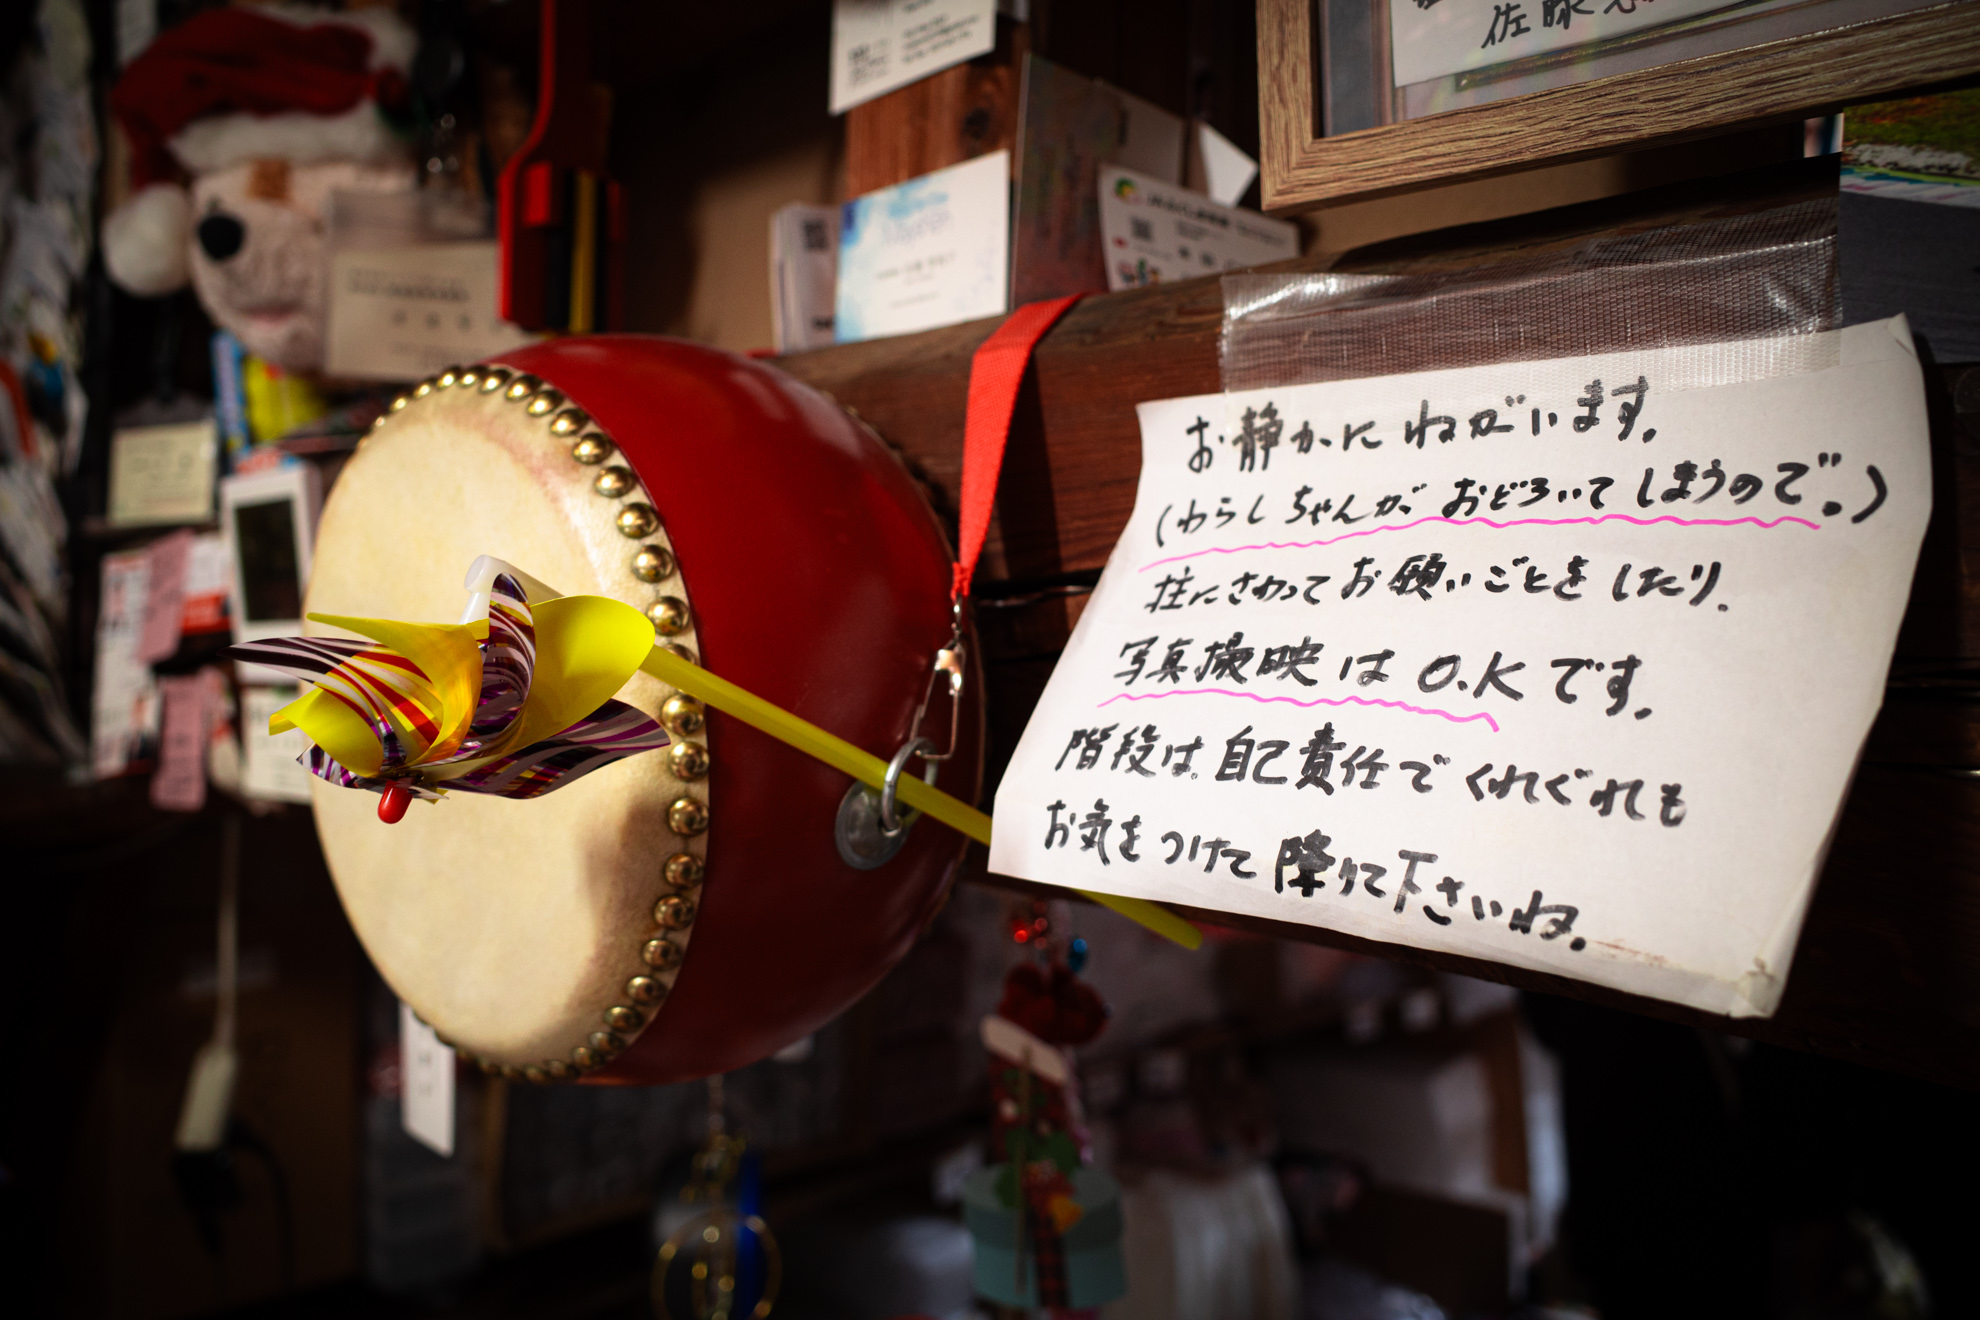 佐藤
お静かにねがいます。
(わらしちゃんがおどろいてしまうので。)
柱にさわってお願いごとをしたり、
写真撮映はO.Kです。
階段は自己責任でくれぐれも
お気をつけて降りて下さいね。